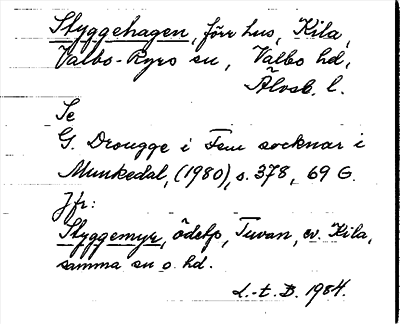 Styggehagen, förr hus, Kila,
Valbo-Ryro sn, Valbo hd,
Älvsb. l.
Se
G. Drougge i Fem socknar i
Munkedal, (1980), s. 378, 69 G.
Jfr:
Styggemyr, ödetp, Tuvan, ev. Kila,
samma sn o. hd.
L.-t. B. 1984.